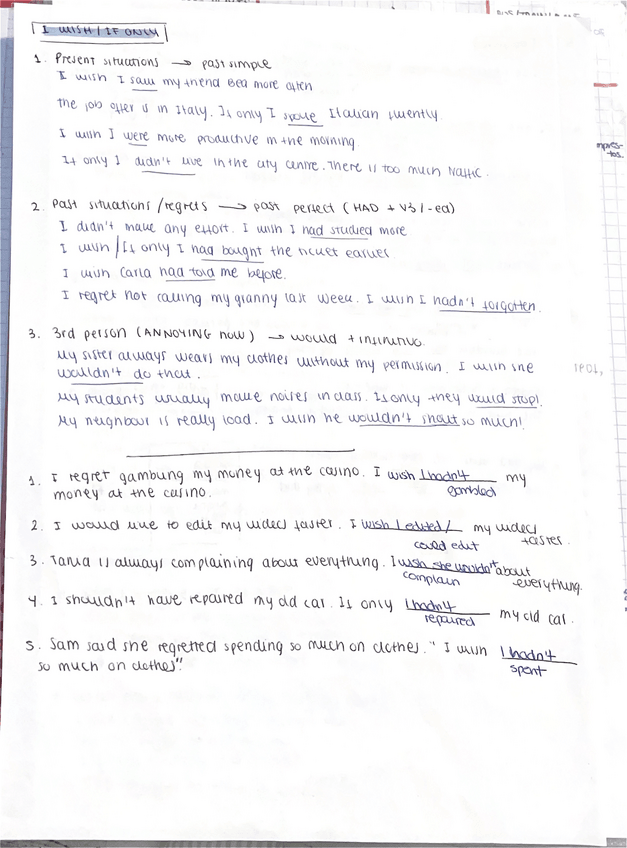 I WISH / IF ONLY
1. Present situations → past simple
I wish I saw my friend Bea more often
the job offer is in Italy. If only I spoke Italian fluently.
I wish I were more productive in the morning.
If only I didn't live in the city centre. There is too much traffic.
2. Past situations / regrets → past perfect (HAD + V3 / -ed)
I didn't make any effort. I wish I had studied more
I wish / If only I had bought the ticket earlier
I wish Carla had told me before.
I regret not calling my granny last week. I wish I hadn't forgotten.
3. 3rd person (ANNOYING now) → would + infinitive.
My sister always wears my clothes without my permission. I wish she
wouldn't do that.
My students usually make noises in class. If only they would stop!.
My neighbour is really load. I wish he wouldn't shout so much!
1. I regret gambling my money at the casino. I wish I hadn't my
gambled
money at the casino.
2. I would like to edit my videos faster. I wish I edited / my videos
could edit faster.
3. Tania is always complaining about everything. I wish she wouldn't about
complain everything.
4. I shouldn't have repaired my old car. If only I hadn't my old car.
repaired
5. Sam said she regretted spending so much on clothes. " I wish I hadn't
so much on clothes".
spent